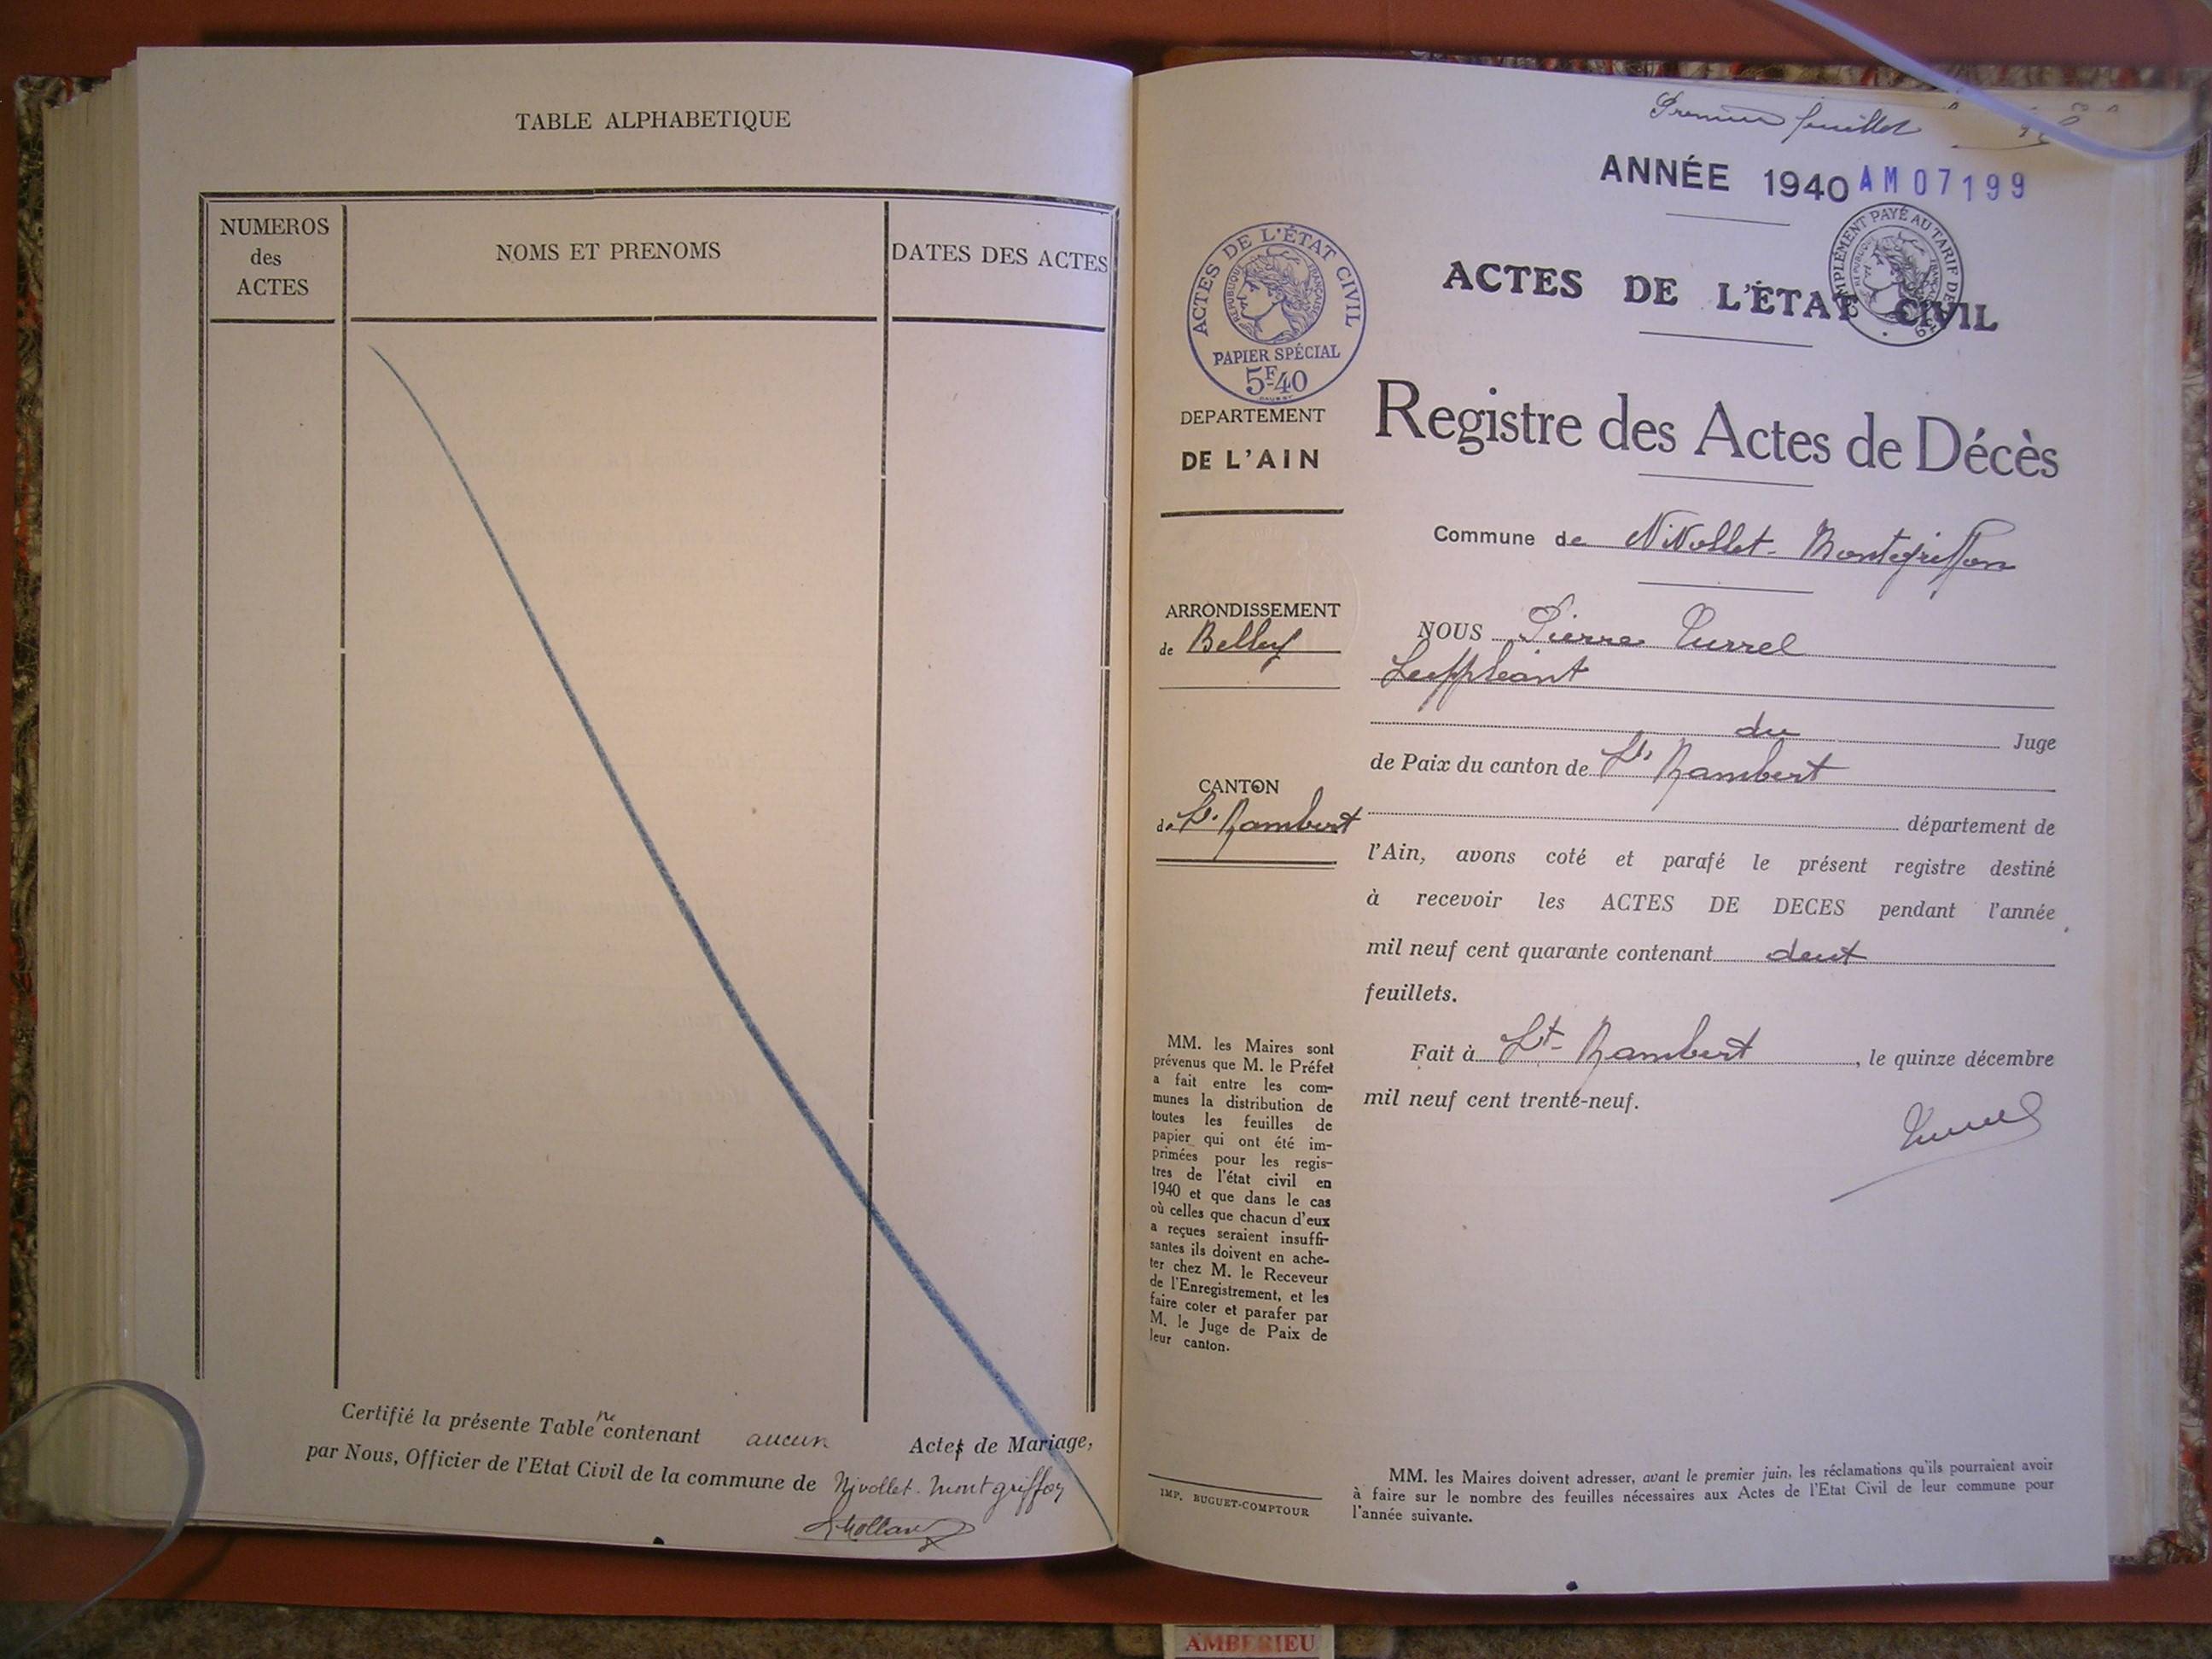 TABLE ALPHABETIQUE
NUMEROS
des
ACTES
NOMS ET PRENOMS
DATES DES ACTES
Certifié la présente Table ne contenant aucun Actes de Mariage,
par Nous, Officier de l'Etat Civil de la commune de Nivollet-Montgriffon
Premier feuillet
ANNÉE 1940 AM07199
ACTES DE L'ÉTAT CIVIL
RÉPUBLIQUE FRANÇAISE
PAPIER SPÉCIAL
5F40
COMPLÉMENT PAYÉ AU TARIF DE
ACTES DE L'ÉTAT CIVIL
Registre des Actes de Décès
DEPARTEMENT
DE L'AIN
Commune de Nivollet-Montgriffon
ARRONDISSEMENT
de Belley
NOUS Pierre Turrel
Suppléant
du Juge
de Paix du canton de St Rambert
CANTON
de St Rambert
département de
l'Ain, avons coté et parafé le présent registre destiné
à recevoir les ACTES DE DECES pendant l'année
mil neuf cent quarante contenant deux
feuillets.
Fait à St Rambert, le quinze décembre
mil neuf cent trente-neuf.
Turrel
MM. les Maires sont
prévenus que M. le Préfet
a fait entre les com-
munes la distribution de
toutes les feuilles de
papier qui ont été im-
primées pour les regis-
tres de l'état civil en
1940 et que dans le cas
où celles que chacun d'eux
a reçues seraient insuffi-
santes ils doivent en ache-
ter chez M. le Receveur
de l'Enregistrement, et les
faire coter et parafer par
M. le Juge de Paix de
leur canton.
IMP. BUGUET-COMPTOUR
MM. les Maires doivent adresser, avant le premier juin, les réclamations qu'ils pourraient avoir
à faire sur le nombre des feuilles nécessaires aux Actes de l'Etat Civil de leur commune pour
l'année suivante.
AMBERIEU